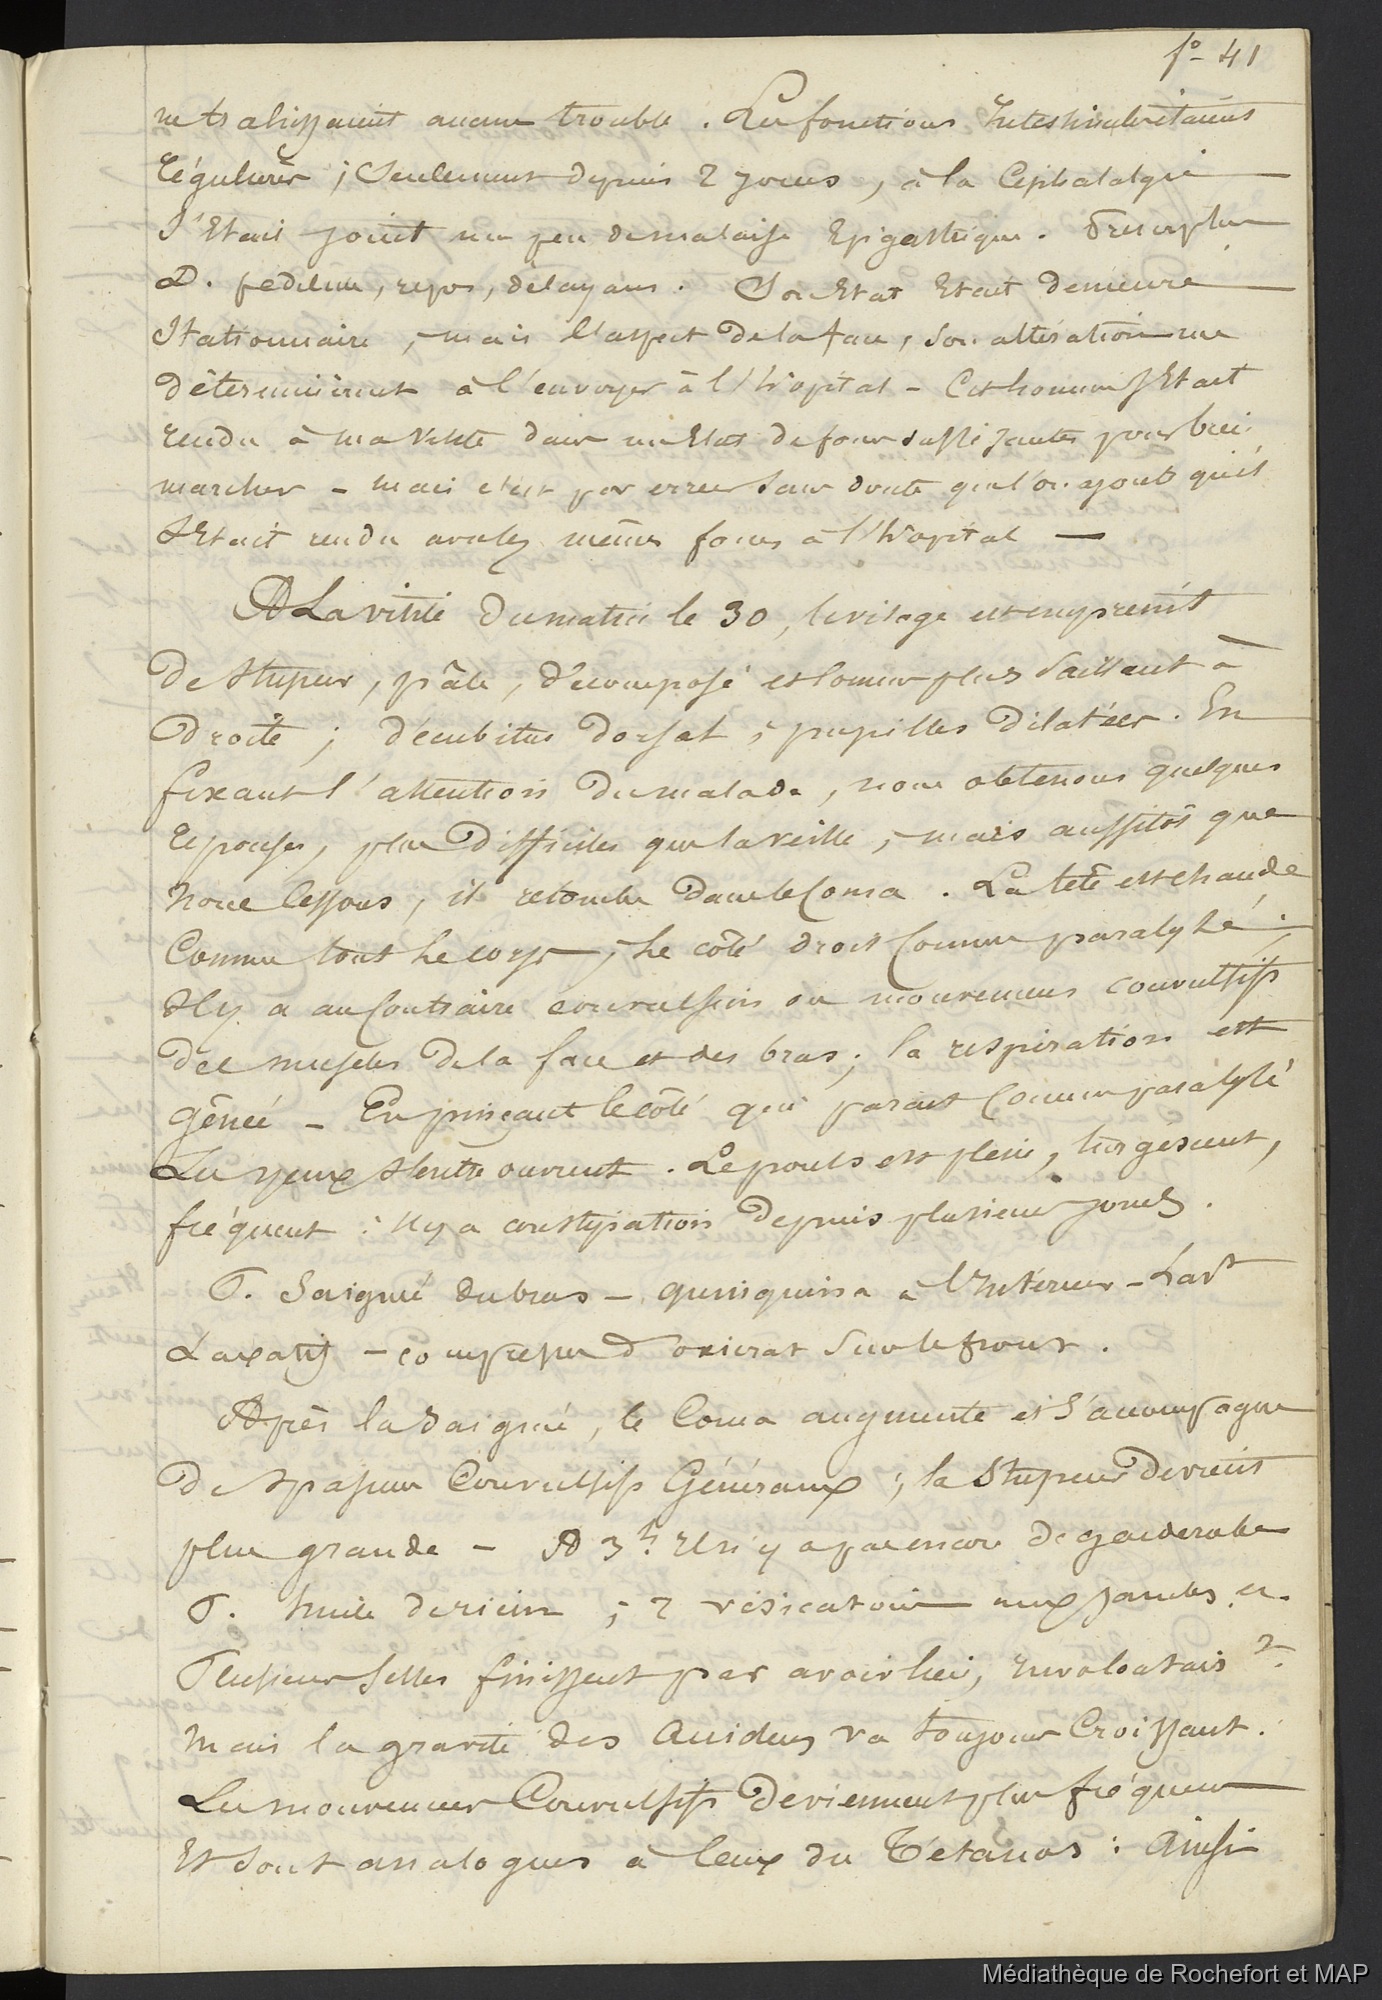 fo 41
ne trahissaient aucun trouble. Les fonctions Intestinales étaient
régulières ; Seulement depuis 2 jours, à la Céphalalgie
S'Etait joint un peu de malaise Epigastrique.
D. pédiluve, repos, délayans. Son Etat Etait demeuré
Stationnaire, mais l'aspect de la face, son altération me
déterminèrent à l'envoyer à l'hôpital - Cet homme s'Etait
rendu à ma visite dans un Etat de forces suffisantes pour bien
marcher - mais c'est par erreur sans doute que l'on ajoute qu'il
S'Etait rendu avec les mêmes forces à l'hôpital —
A La visite du matin le 30, le visage est empreint
de stupeur, pâle, décomposé et comme plus saillant à
Droite ; décubitus dorsal ; pupilles dilatées. En
fixant l'attention du malade, nous obtenons quelques
réponses, plus difficiles que la veille, mais aussitôt que
nous cessons, il retombe dans le Coma. La tête est chaude
Comme tout le corps, Le côté droit Comme paralysé ;
Il y a au Contraire convulsion ou mouvemens convulsifs
des muscles de la face et des bras ; la respiration est
gênée - En pinçant le côté qui parait Comme paralysé
Les yeux s'entre ouvrent. Le pouls est plein, turgescent,
fréquent : Il y a constipation depuis plusieurs jours.
P. Saignée du bras - quinquina à l'Intérieur - Lavt
Laxatif - compresses d'oxicrat sur le front.
Après la saignée, le Coma augmente et s'accompagne
De spasmes Convulsifs Généraux ; la Stupeur devient
plus grande - A 3h. Il n'y a pas encore de garderobes
P. huile de ricin ; 2 vésicatoires aux jambes
Plusieurs selles finissent par avoir lieu, involontaires
Mais la gravité des Accidens va toujours Croissant.
Les mouvemens Convulsifs deviennent plus fréquens
Et sont analogues à Ceux du Tétanos : Ainsi
Médiathèque de Rochefort et MAP